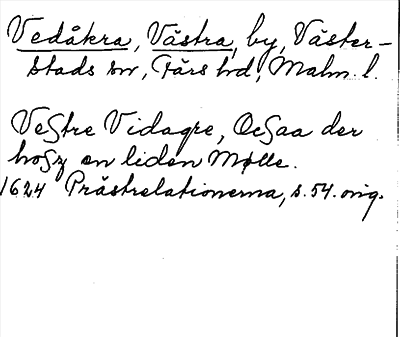 Vedåkra, Västra, by, Väster-
stads sn, Färs hd, Malm. l.
Veſtre Vidagre, Ocſaa der
hoſz en liden Mølle.
1624 Prästrelationerna, s. 54. orig.